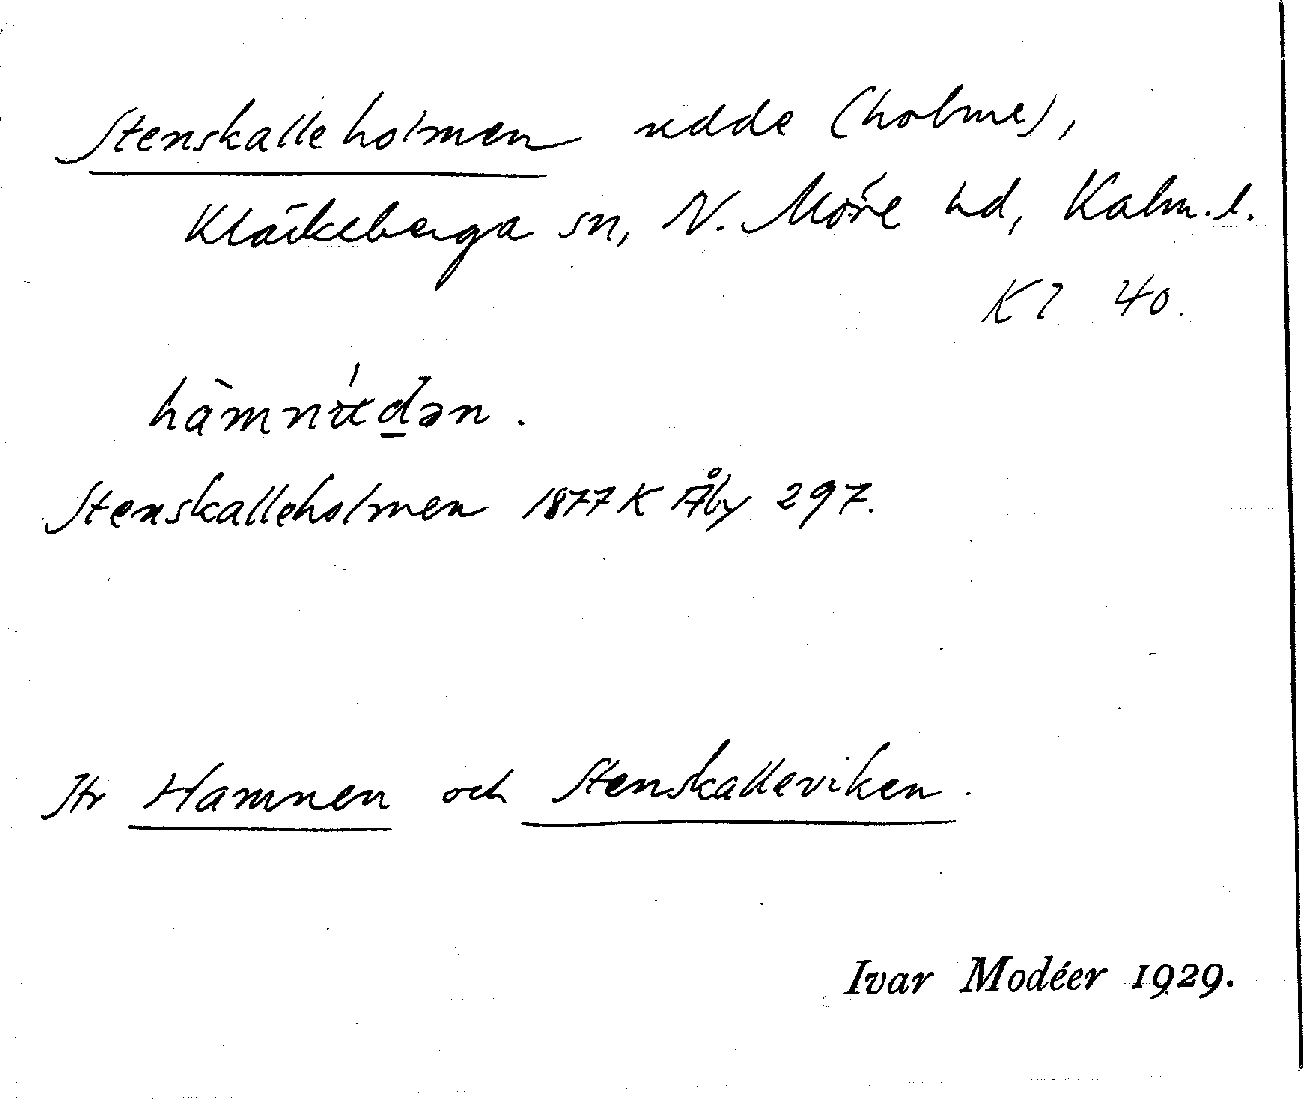 Stenskalleholmen udde (holme),
Kläckeberga sn, N. Möre hd, Kalm. l.
K l 40.
hàmnúdən.
Stenskalleholmen 1877 K Åby 297.
Jfr Hamnen och Stenskalleviken.
Ivar Modéer 1929.